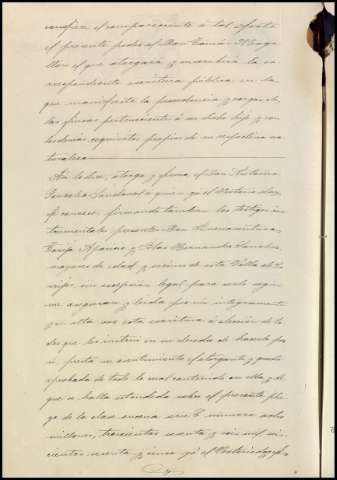 confiere el compareciente á tal efecto
el presente poder al Don Tomás
llo el que otorgará y suscribirá la co
rrespondiente escritura pública en la
que manifieste la procedencia y cargas de
las fincas pertenecientes á su dicho hijo y con
los demás requisitos propios de su respectiva na
turaleza
Así lo dice, otorga y firma el Don Antonio
González Sandoval á quien yo el Notario doy
fé conozco firmando tambien los testigos ins
trumentales presentes Don Buenaventura
Aparicio y Blas Hernandez Sanchez
mayores de edad y vecinos de esta Villa de
sin excepcion legal para serlo según
me aseguran y leida por mi integramente
y en alta voz esta escritura á eleccion de to
dos que les instruí en su derecho de hacerlo por
sí, presta su consentimiento el otorgante y queda
aprobada de todo lo cual contenido en ella y de
que se halla estendida sobre el presente plie
go de la clase oncena serie número ocho
millones, trescientos setenta y seis mil seis
cientos setenta y cinco yo el Notario doy fé